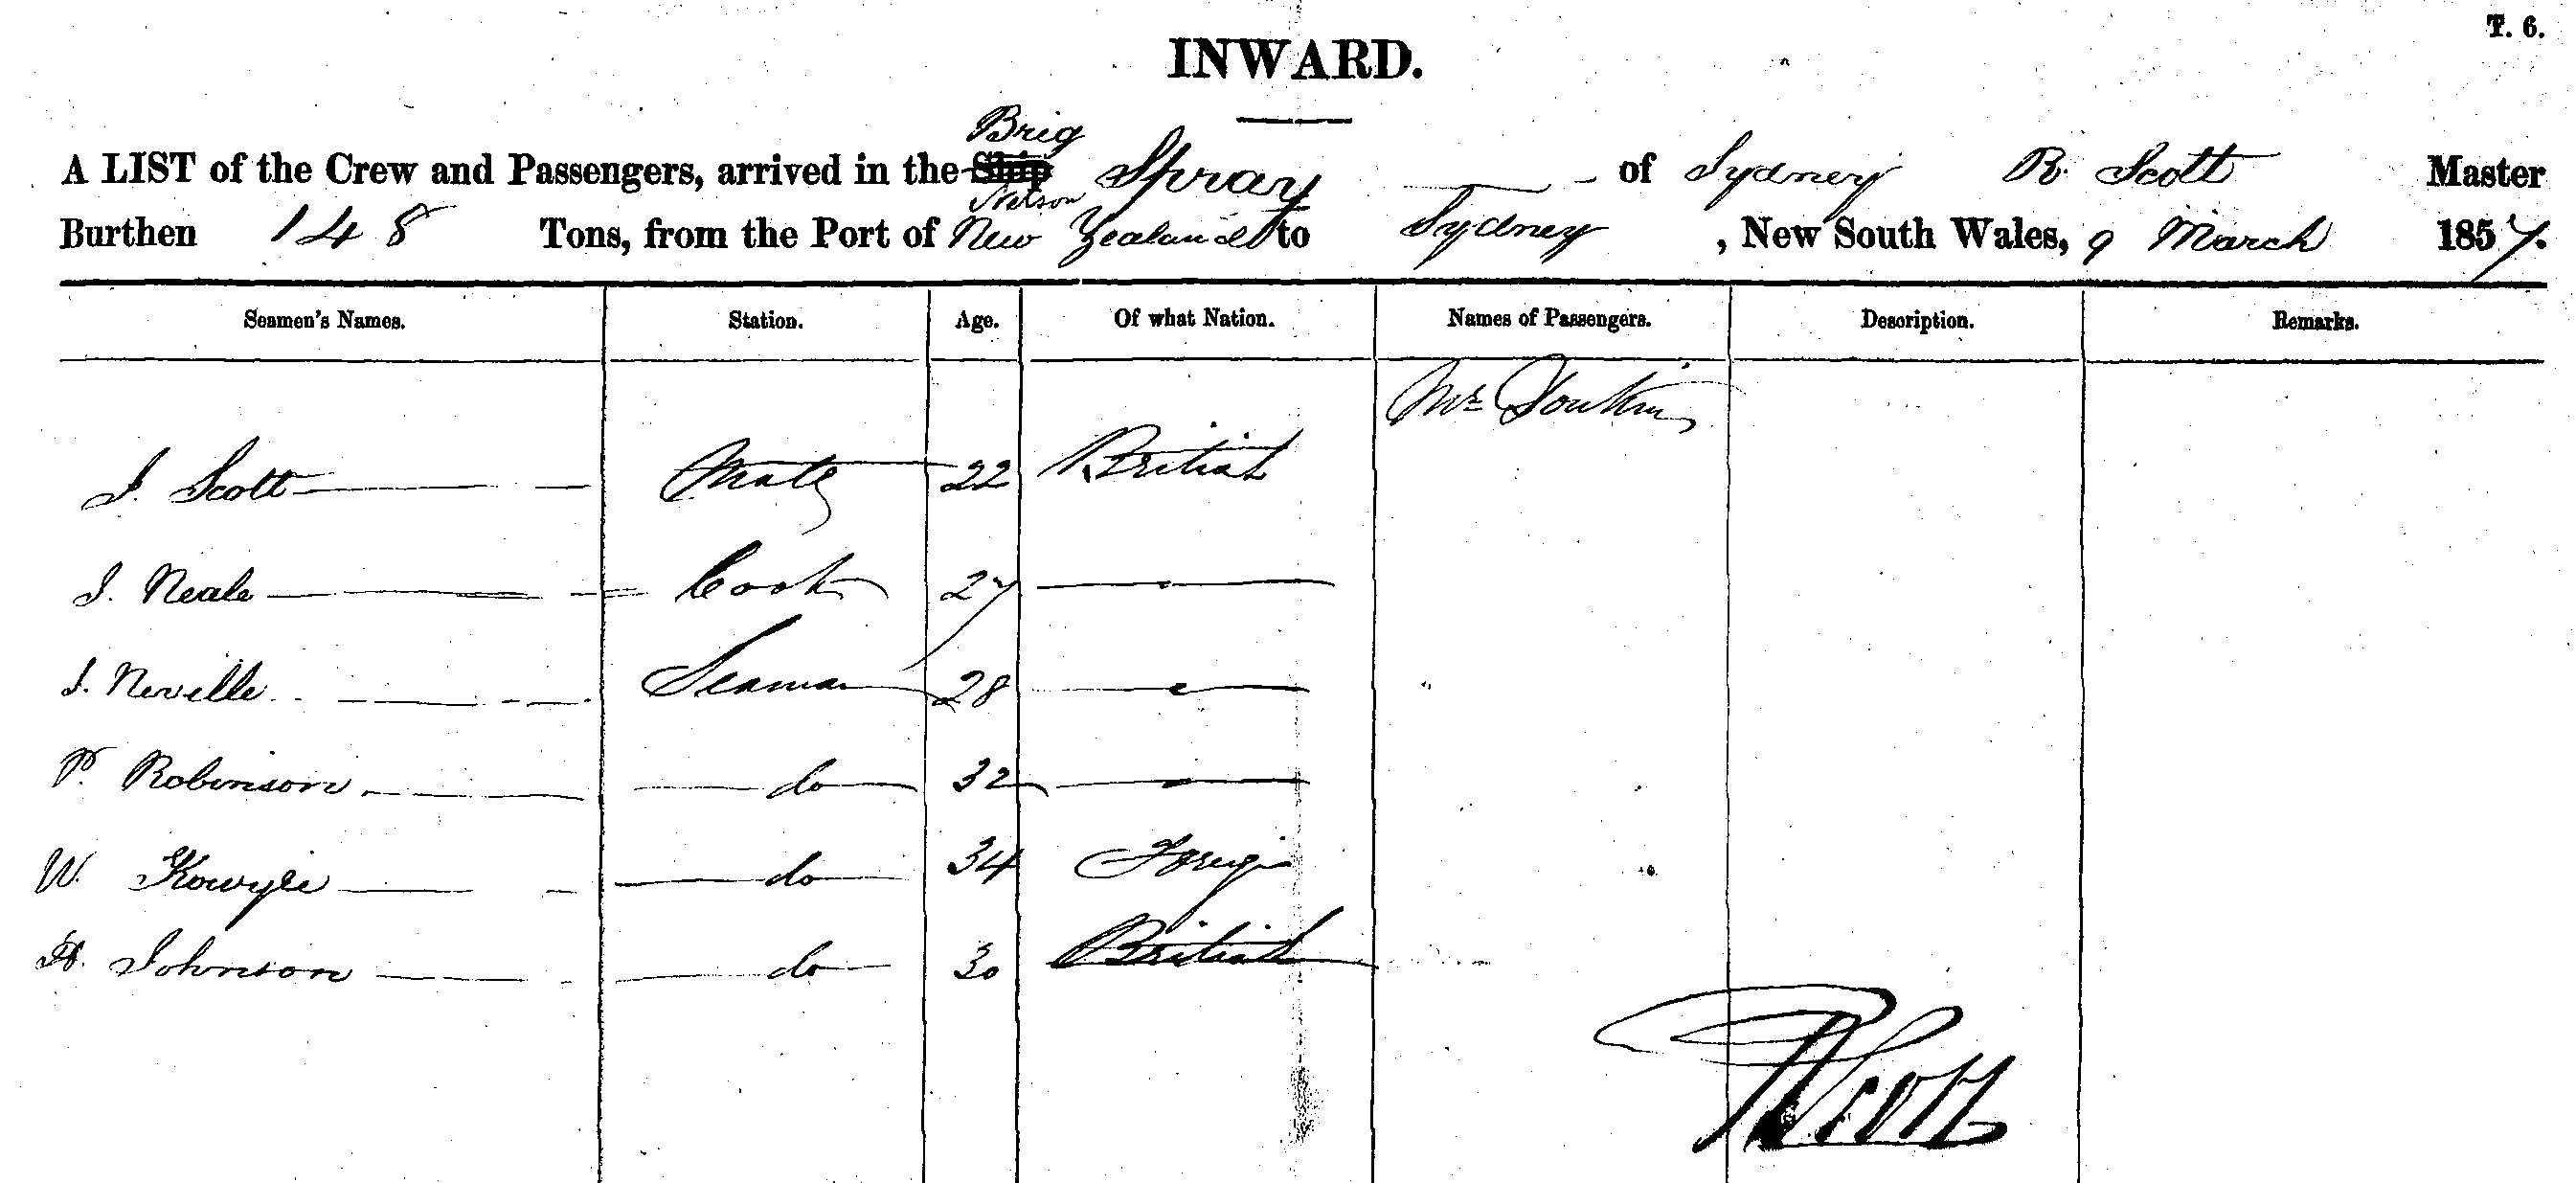 T. 6.
INWARD.
Brig
A LIST of the Crew and Passengers, arrived in the Ship Spray of Sydney R. Scott Master
Nelson
Burthen 148 Tons, from the Port of New Zealand to Sydney, New South Wales, 9 March 1857.
Seamen's Names. Station. Age. Of what Nation. Names of Passengers. Description. Remarks.
Mr
J. Scott Mate 22 British
J. Neale Cook 27
J. Neville Seaman 28
P. Robinson do 32
W. do 34 Foreign
H. Johnson do 30 British
R Scott